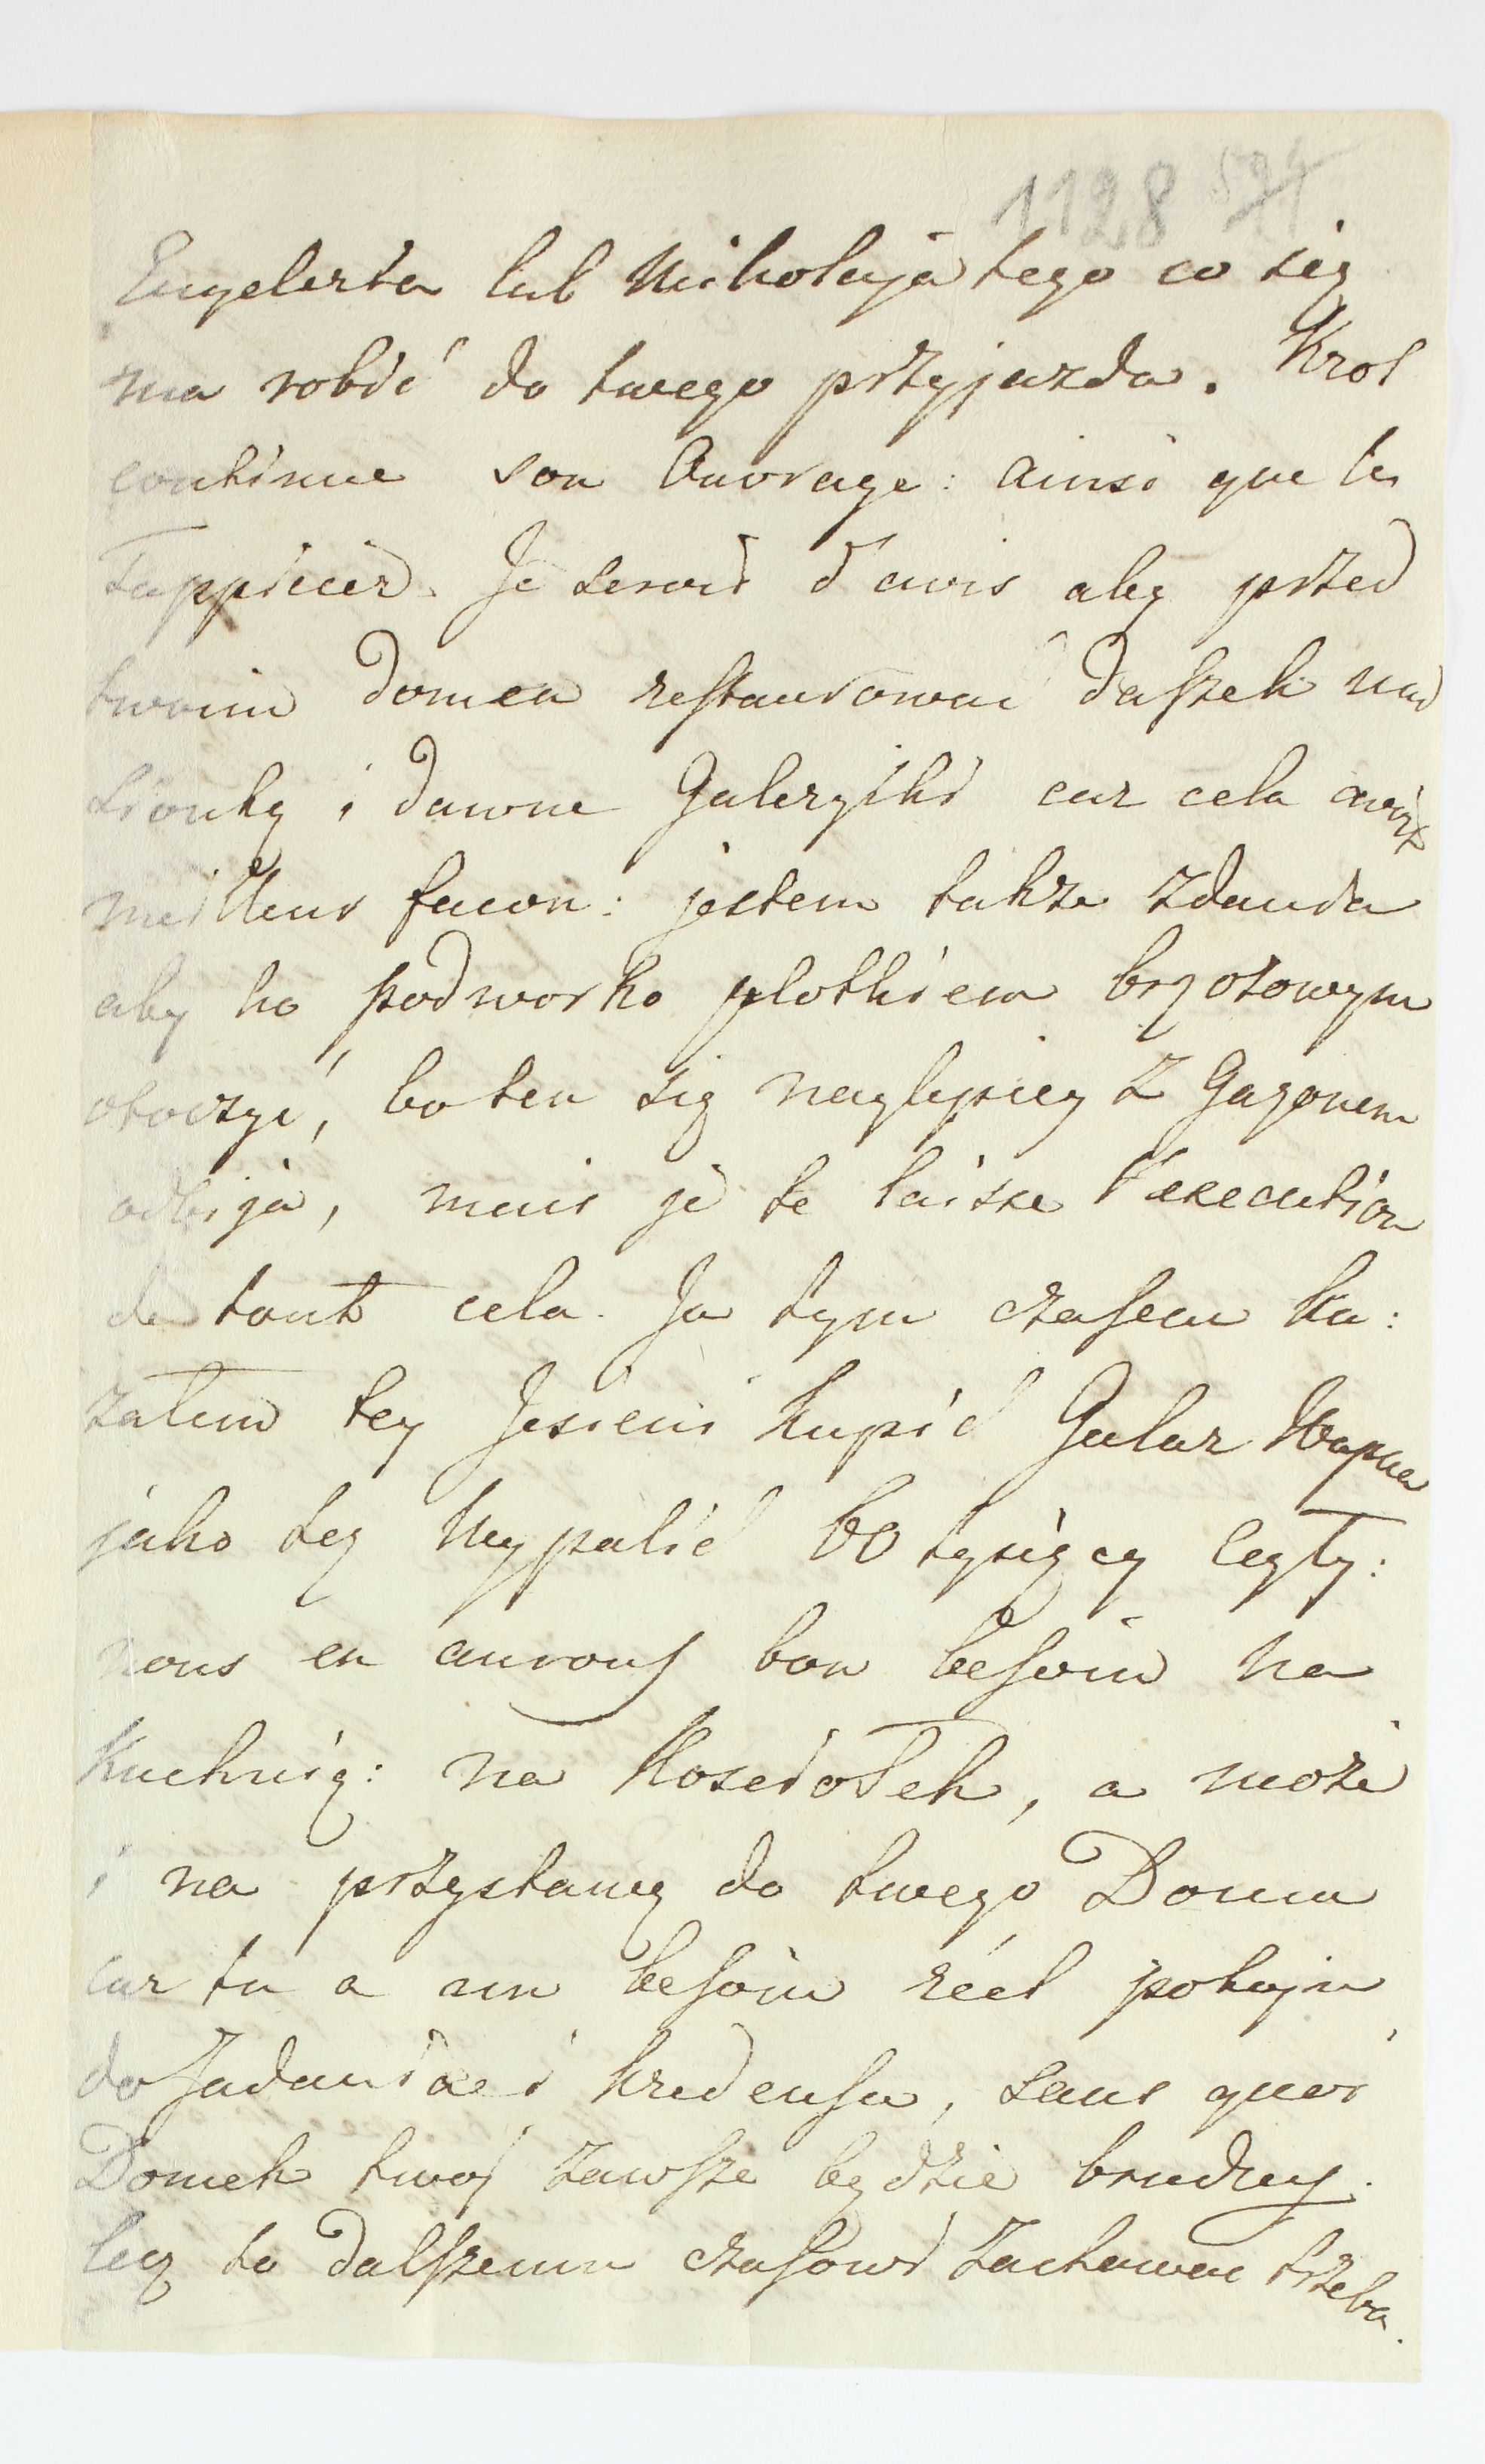 1128 594
Engelerta lub Mikołaja tego co się
ma robić do twego przyjazda. Krol
continue son Ouvrage: ainsi que le
Tappicier. Je serois d'avis aby przed
twoim domem restaurowac daszek nad
sionkę i dawne Galeryiki car cela
meilleur facon: jestem takze zdania
aby to podworko plotkiem brzozowym
otoczyć, bo ten się naylepiey z Gazonem
odbija, mais je te laisse l'execution
de tout cela. Ja tym czasem ka:
załem tey Jesieni kupić Galar Wapna
jako tez wypalić 60 tysięcy Cegły:
nous en aurons bon besoin na
Kuchnię: na Kosciołek, a może
i na przystawę do twego Domu
car tu a un besoin réel pokoju
do Jadania i kredensu, sans quoi
Domek twoj zawsze będzie brudny.
lecz to dalszemu czasowi zachowac trzeba.